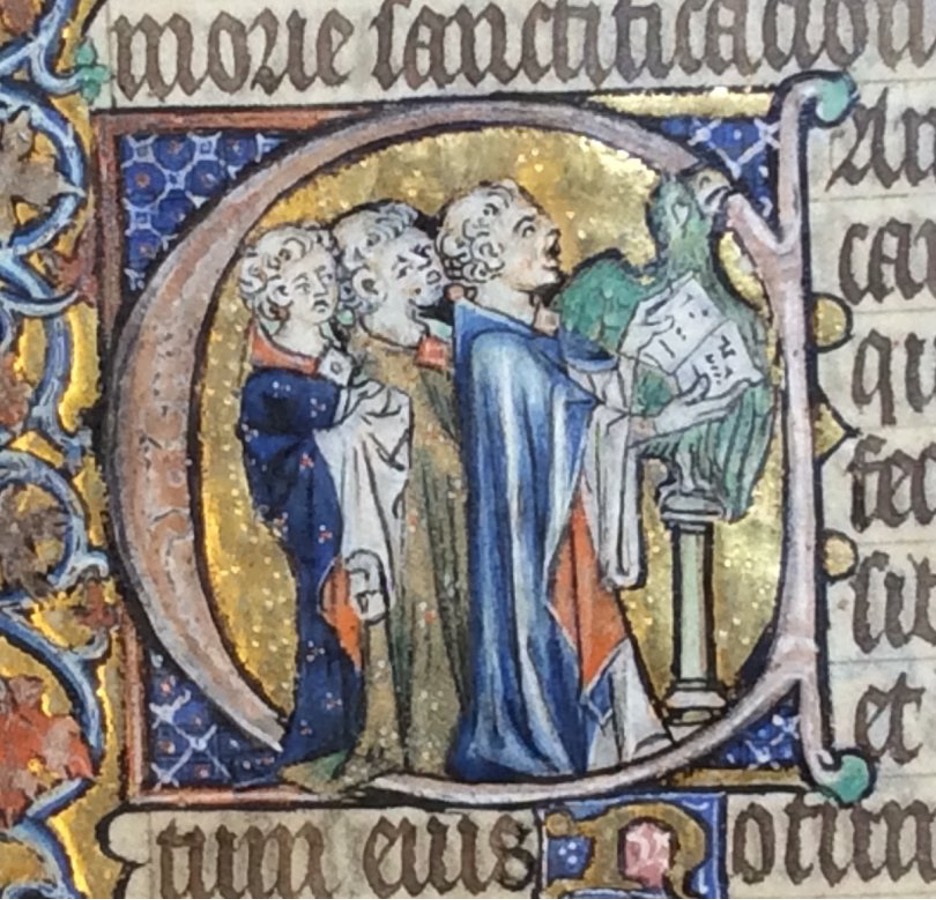 morie sanctificacion
An
can
qu
fec
sib
et
tum eius Notum